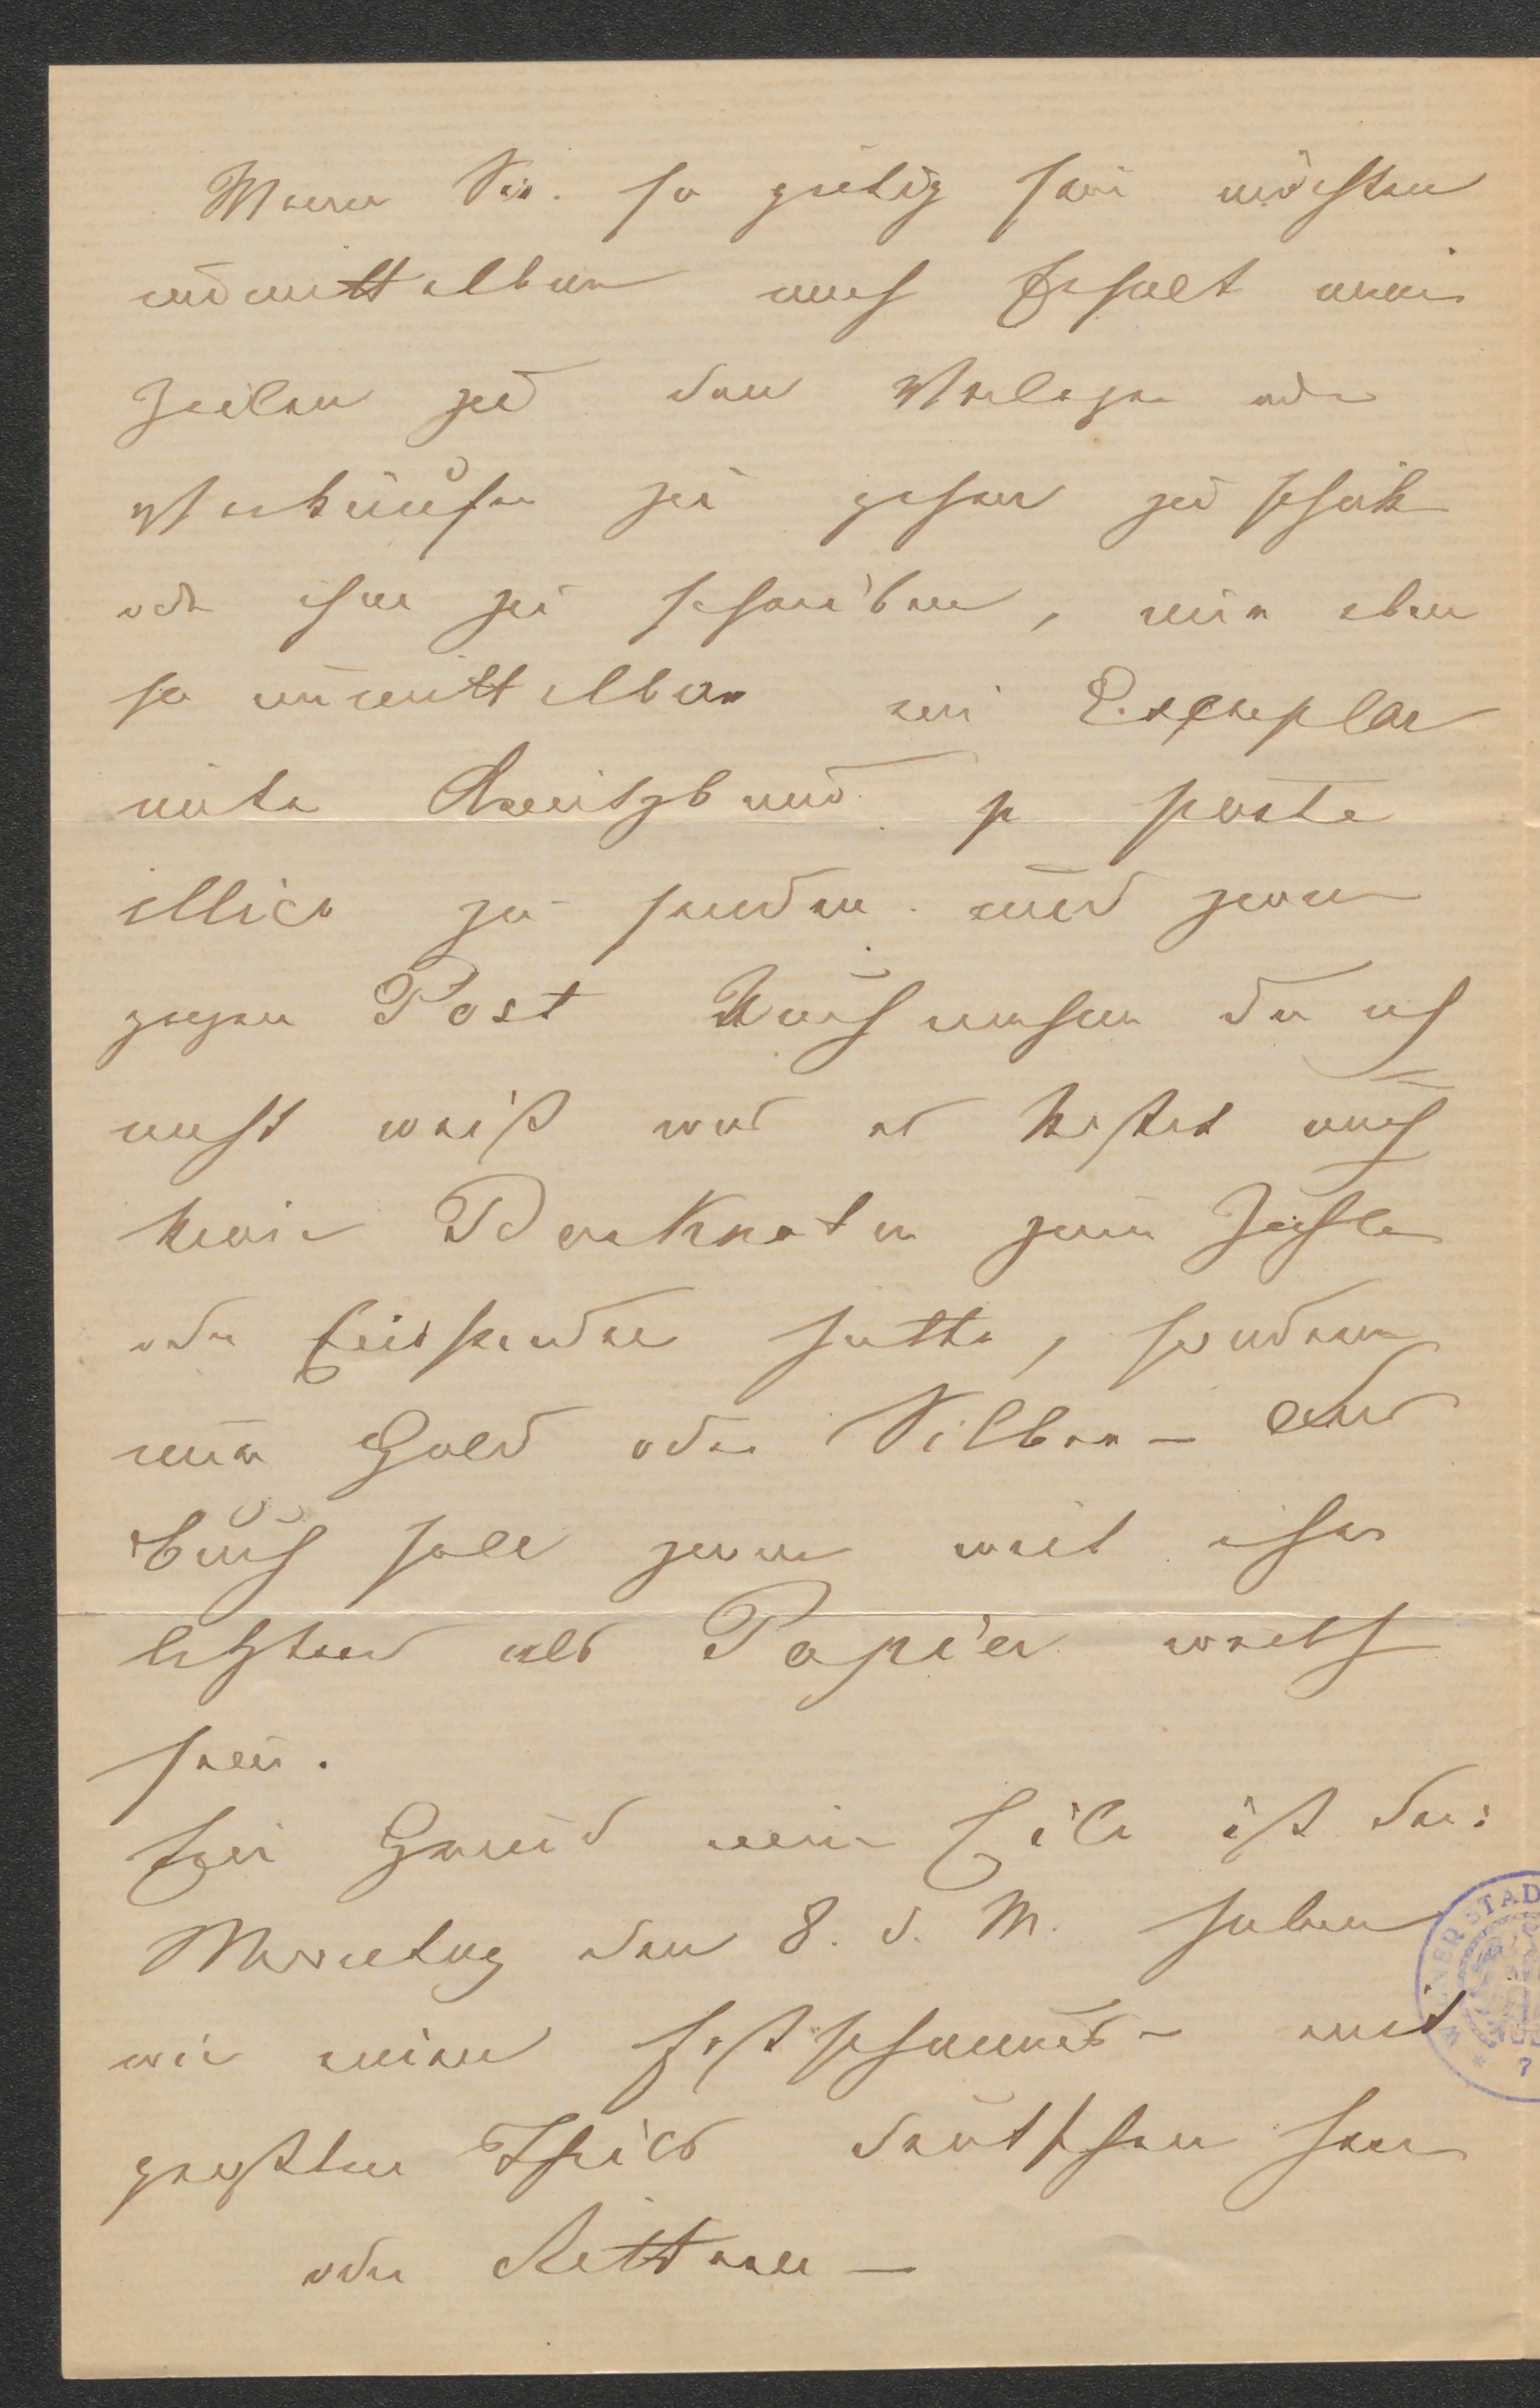 Wenn Sie so gütig sein möchten
unmittelbar nach Erhalt meiner
Zeilen zu dem Verleger oder
Verkäufer zu gehen zu schicken
oder ihm zu schreiben, mir eben
so unmittelbar ein Exemplar
unter Kreuzband p poste
zu senden und zwar
gegen Post Nachnahme da ich
nicht weiß was es kostet auch
keine Banknoten zum Zahlen
oder Einsenden hätte, sondern
nur Gold oder Silber – das
Buch soll zwar weit eher
letzteres als Papier werth
sein.
Der Grund meiner Eile ist der:
Montag den 8. d. M. haben
wir einen mit
größten Theils deutschen Herrn
oder Rittern –
WIENER STAD
7